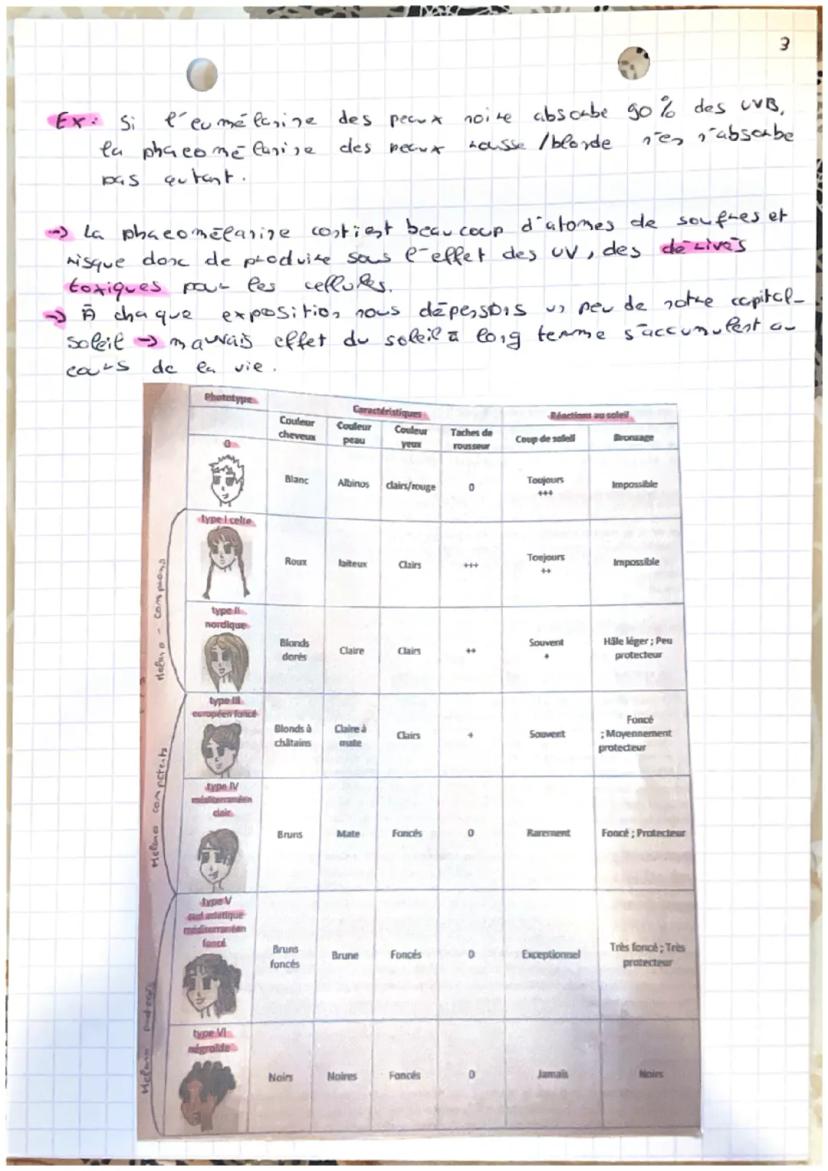 3
Ex: Si l'eumélanine des peaux noire absorbe 90% des UVB,
la phaeomélanine des peaux rousse /blonde n'en n'absorbe
pas autant.
→ La phaeomélanine contient beaucoup d'atomes de soufres et
risque donc de produire sous l'effet des UV, des dérivés
toxiques pour les cellules.
→ À chaque exposition nous dépensons un peu de notre capital-
soleil → mauvais effet du soleil à long terme s'accumulent au
cours de la vie.
Phototype Caractéristiques Réactions au soleil
Couleur cheveux Couleur peau Couleur yeux Taches de rousseur Coup de soleil Bronzage
0 Blanc Albinos clairs/rouge 0 Toujours +++ Impossible
type I celte Roux laiteux Clairs +++ Toujours ++ Impossible
type II nordique Blonds dorés Claire Clairs ++ Souvent + Hâle léger ; Peu protecteur
type III européen foncé Blonds à châtains Claire à mate Clairs + Souvent Foncé ; Moyennement protecteur
type IV méditerranéen clair Bruns Mate Foncés 0 Rarement Foncé ; Protecteur
type V sud asiatique méditerranéen foncé Bruns foncés Brune Foncés 0 Exceptionnel Très foncé ; Très protecteur
type VI négroïde Noirs Noires Foncés 0 Jamais Noirs
Mélano - compromis
Mélano compétents
Mélano